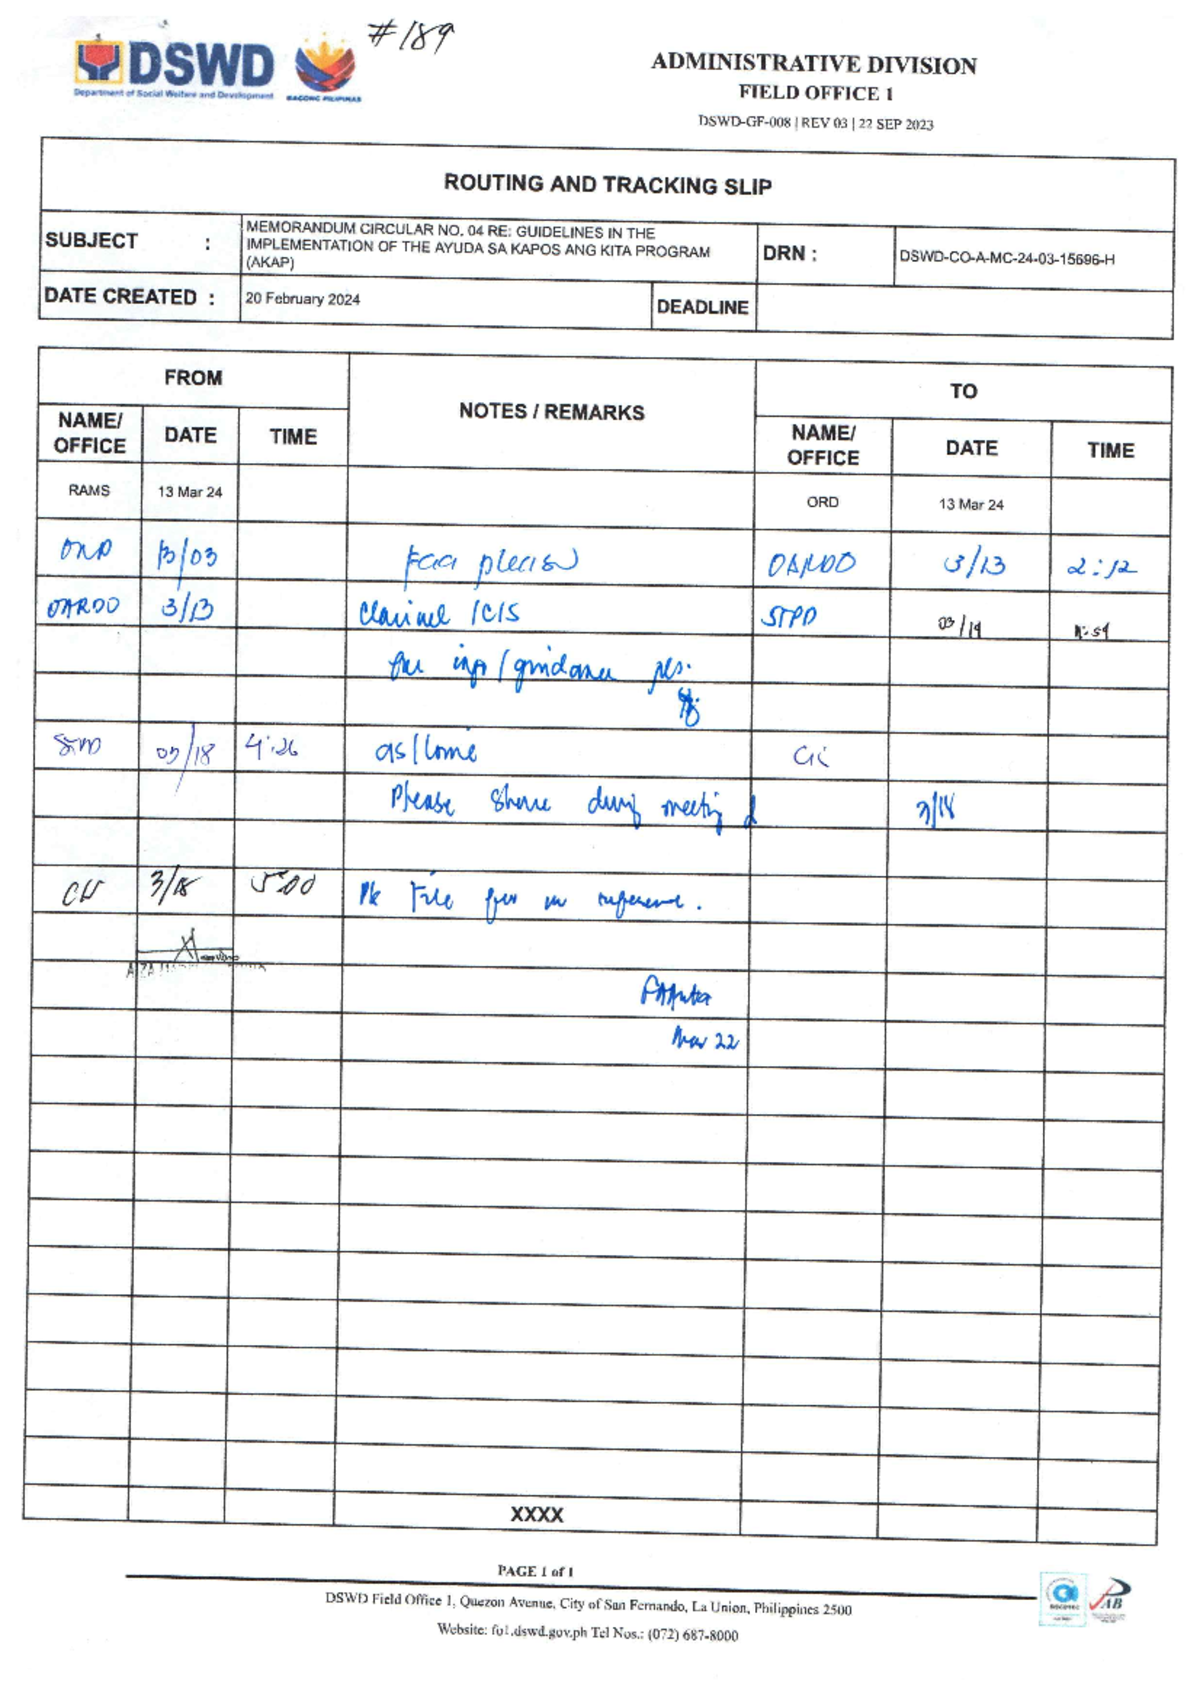 #189
DSWD
Department of Social Welfare and Development
BAGONG PILIPINAS
ADMINISTRATIVE DIVISION
FIELD OFFICE 1
DSWD-GF-008 | REV 03 | 22 SEP 2023
ROUTING AND TRACKING SLIP
SUBJECT :
MEMORANDUM CIRCULAR NO. 04 RE: GUIDELINES IN THE
IMPLEMENTATION OF THE AYUDA SA KAPOS ANG KITA PROGRAM
(AKAP)
DRN :
DSWD-CO-A-MC-24-03-15696-H
DATE CREATED :
20 February 2024
DEADLINE
FROM
NOTES / REMARKS
TO
NAME/
OFFICE
DATE
TIME
NAME/
OFFICE
DATE
TIME
RAMS 13 Mar 24 ORD 13 Mar 24
13/03 Faa please OARDO 3/13 2:12
OARDO 3/13 /CIS STPD 03/14
info/guidance pls.
03/18 4:26 as/
Please share during meeting 3/18
3/18 5:00 File reference.
Mar 22
XXXX
PAGE 1 of 1
DSWD Field Office 1, Quezon Avenue, City of San Fernando, La Union, Philippines 2500
Website: fo1.dswd.gov.ph Tel Nos.: (072) 687-8000
PAB